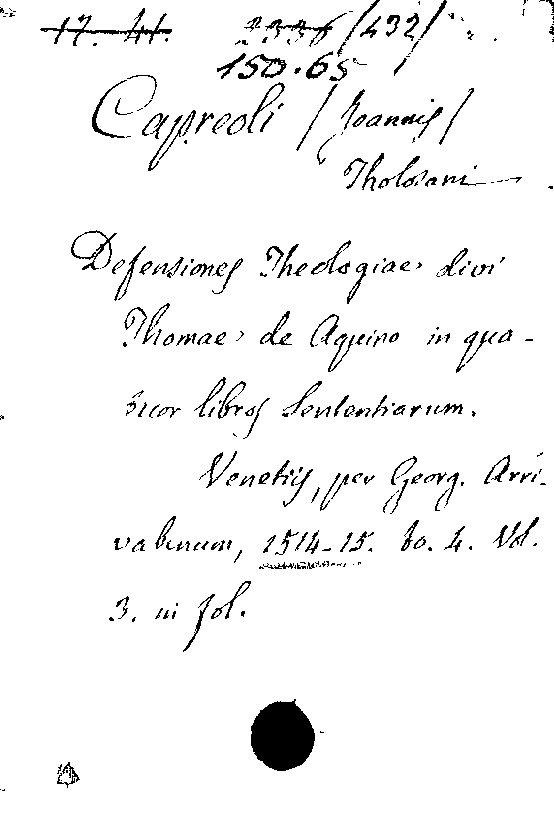 17. 41. 2336 /432/
150.65
Capreoli /Joannis/
Tholosani
Defensiones Theologiae divi
Thomae de Aquino in qua-
tuor libros Sententiarum.
Venetiis, per Georg. Arri-
vabenum, 1514-15. to. 4. Vol.
3. in fol.